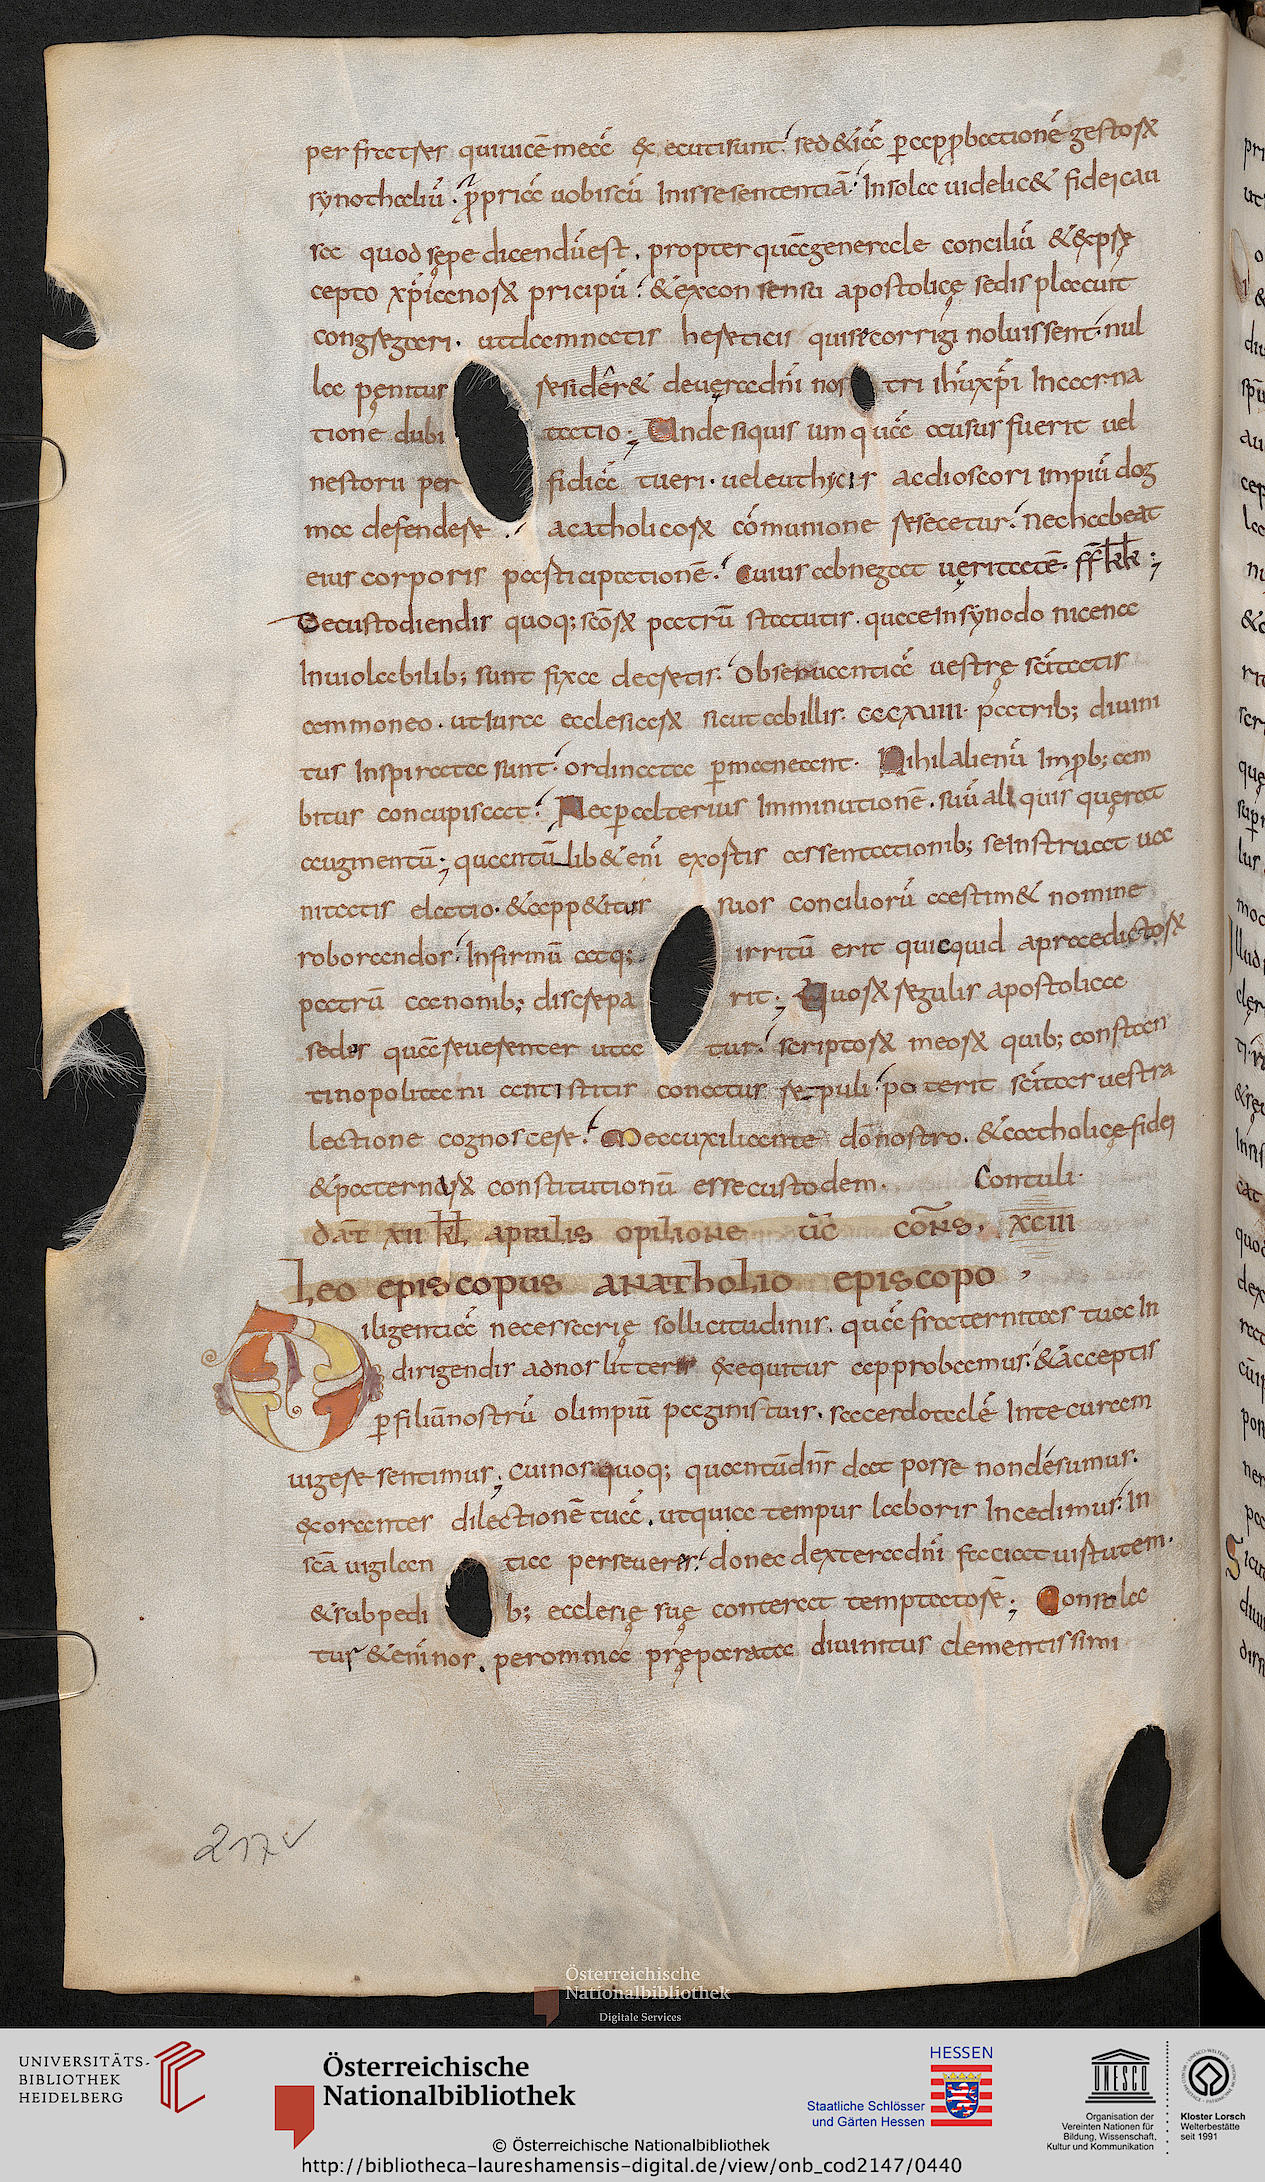 per fratrer quiuicē meā executisunt. sed &iā ꝑapprobationē gestoꝝ
synothaliū. ꝓpriā uobiscū Inissesententiā. Insola uidelic& fideicau
sa quod sępe dicendū est. propter quāgenerale conciliū &exprę
cepto xp̄ianoꝝ pricipū. &exconsensu apostolicę sedis placuit
congregari. utdamnatis hereticis quirecorrigi noluissent. nul
la pęnitus resider& deueradn̄i nos tri ihūxp̄i Incarna
tione dubi tatio; Unde siquis umquā ausus fuerit uel
nestorii per fidiā tueri. uel euthycis acdioscori impiū dog
ma defendere. acatholicoꝝ cōmunione resecetur. nechabeat
eius corporis participationē. cuius abnegat ueritatē. ffkk;
Decustodiendis quoq; scōꝝ patrū statutis. quaeInsynodo nicena
Inuiolabilib; sunt fixa decretis. Obseruantiā uestrę sc̄itatis
ammoneo. utIura ecclesiaꝝ sicut abillis. cccxuiii. patrib; diuini
tus Inspirata sunt. ordinata ꝑmaneant. Nihil alienū Improb; am
bitus concupiscat. Necꝑalterius Imminutionē. suū ali quis quęrat
augmentū; quantūlib& enī exortis assentationib; seInstruat ua
nitatis elatio. &app&itus suos conciliorū aestim& nomine
roborandos. Infirmū atq; irritū erit quicquid apraedictoꝝ
patrū canonib; discrepa rit; Quoꝝ regulis apostolica
sedis quāreuerenter uta tur. scriptoꝝ meoꝝ quib; constan
tinopolitani antistitis conatus repuli. poterit sc̄itas uestra
lectione cognoscere. Meauxiliante dn̄onostro. &catholicę fidei
&paternaꝝ constitutionū essecustodem. Contuli.
dat̄ xii kl aprilis opilione uc̄ cons. xciii
Leo episcopus anatholio episcopo
Diligentiā necessarię sollicitudinis. quā fraternitas tua In
dirigendis adnos litteris exequitur approbamus. &acceptis
ꝑ filiūnostrū olimpiū paginis tuis. sacerdotalē Inte curam
uigere sentimus; cuinos quoq; quantūdn̄s dat posse nondesumus.
exorantes dilectionē tuā. utquia tempus laboris Incedimus. In
scā uigilan tia perseueres. donec dexteradn̄i faciat uirtutem.
&subpedi b; ecclesię suę conterat temptatorē; Consola
tus &enī nos. perommia pręparata diuinitus clementissimi
217v
Österreichische
Nationalbibliothek
Digitale Services
UNIVERSITÄTS-
BIBLIOTHEK
HEIDELBERG
Österreichische
Nationalbibliothek
HESSEN
Staatliche Schlösser
und Gärten Hessen
UNESCO
Organisation der
Vereinten Nationen für
Bildung, Wissenschaft,
Kultur und Kommunikation
Kloster Lorsch
Welterbestätte
seit 1991
© Österreichische Nationalbibliothek
http://bibliotheca-laureshamensis-digital.de/view/onb_cod2147/0440